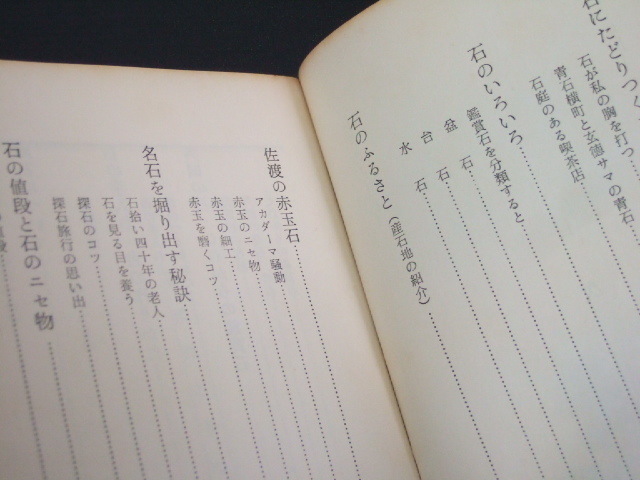 石にたどりつく
石が私の胸を打つ
青石横町と玄蕃サマの青石
石庭のある喫茶店
石のいろいろ
鑑賞石を分類すると
盆石
台石
水石
石のふるさと（産石地の紹介）
佐渡の赤玉石
アカダーマ騒動
赤玉のニセ物
赤玉の細工
赤玉を磨くコツ
名石を掘り出す秘訣
石拾い四十年の老人
石を見る目を養う
探石のコツ
探石旅行の思い出
石の値段と石のニセ物